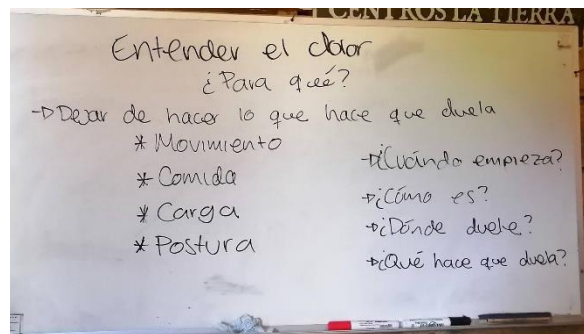 CENTROS LA TIERRA
Entender el dolor
¿Para qué?
→Dejar de hacer lo que hace que duela
* Movimiento
* Comida
* Carga
* Postura
→¿Cuándo empieza?
→¿Cómo es?
→¿Dónde duele?
→¿Qué hace que duela?